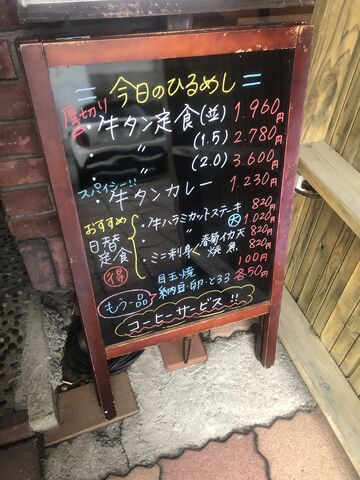 今日のひるめし
厚切り
・牛タン定食(並) 1.960円
・ 〃 (1.5) 2.780円
・ 〃 (2.0) 3.600円
スパイシー!!
・牛タンカレー 1.230円
おすすめ
日替定食
得
・牛ハラミカットステーキ 820円
・ 〃 大 1.020円
・ミニ刺身 春菊イカ天 820円
焼魚 820円
もう一品
目玉焼 100円
納豆・卵・とろろ 各50円
コーヒーサービス!!